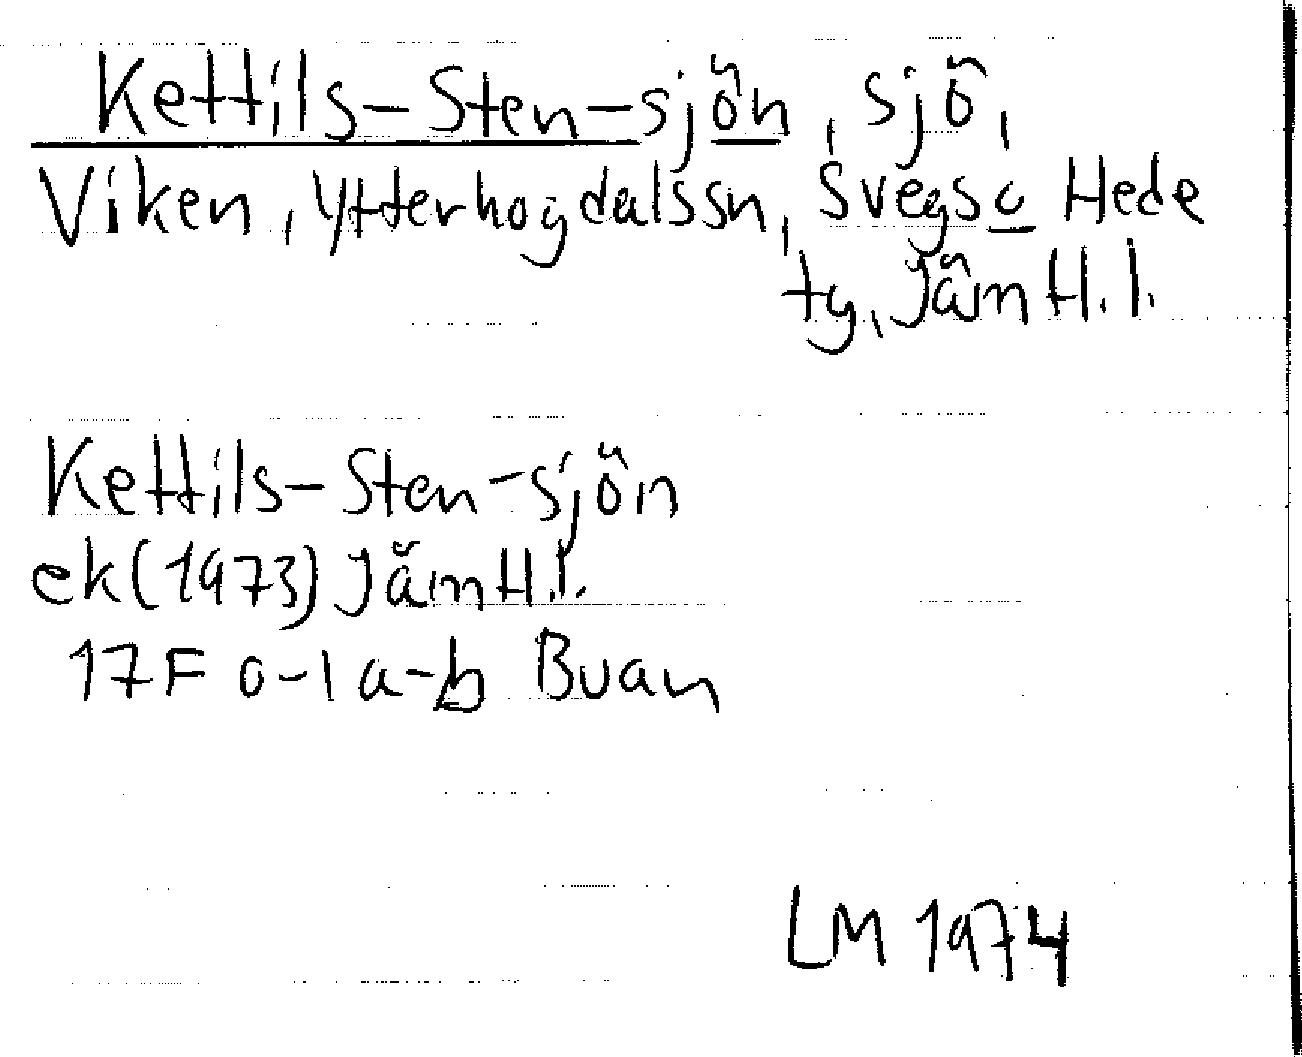 Kettils-Sten-sjön, sjö,
Viken, Ytterhogdalssn, Svegs o Hede
tg, Jämtl. l.
Kettils-Sten-sjön
ek (1973) Jämtl. l.
17F 0-1 a-b Buan
LM 1974